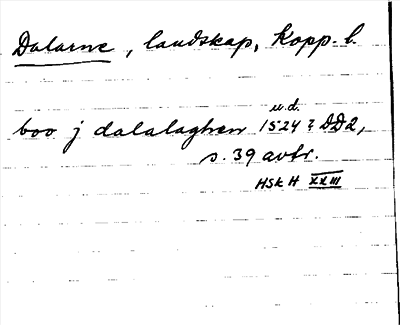 Dalarne, landskap, Kopp. l.
u.d.
boo j dalalaghen 1524 ? DD2,
s. 39 avtr.
HSK H XXIII